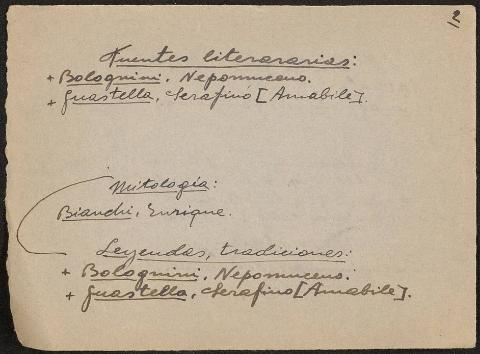 2
Fuentes literararias:
+ Bolognini, Nepomuceno.
+ Guastella, Serafino [Amabile].
Mitología:
Bianchi, Enrique.
Leyendas, tradiciones:
+ Bolognini, Nepomuceno.
+ Guastella, Serafino [Amabile].